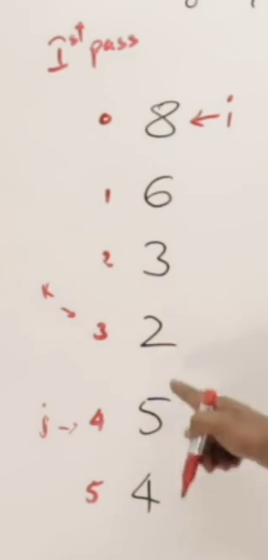 Ist pass
0 8 ← i
1 6
2 3
K →
3 2
j → 4 5
5 4